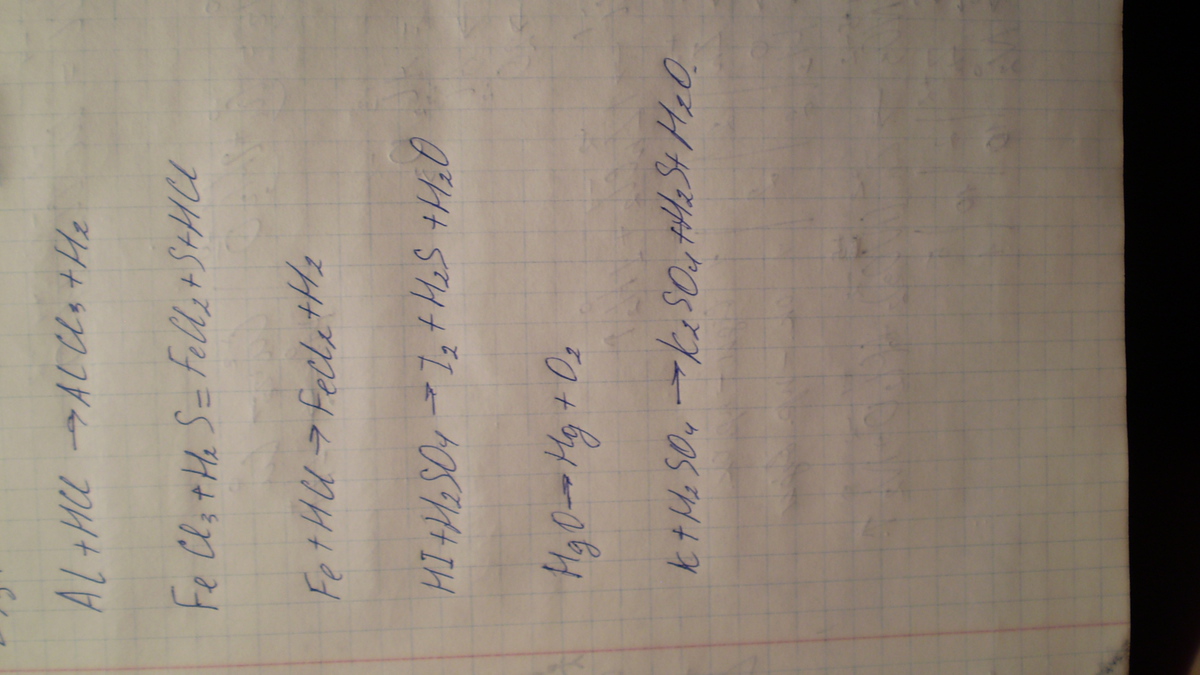 Al + HCl → AlCl₃ + H₂
FeCl₃ + H₂S = FeCl₂ + S + HCl
Fe + HCl → FeCl₂ + H₂
HI + H₂SO₄ → I₂ + H₂S + H₂O
HgO → Hg + O₂
K + H₂SO₄ → K₂SO₄ + H₂S + H₂O